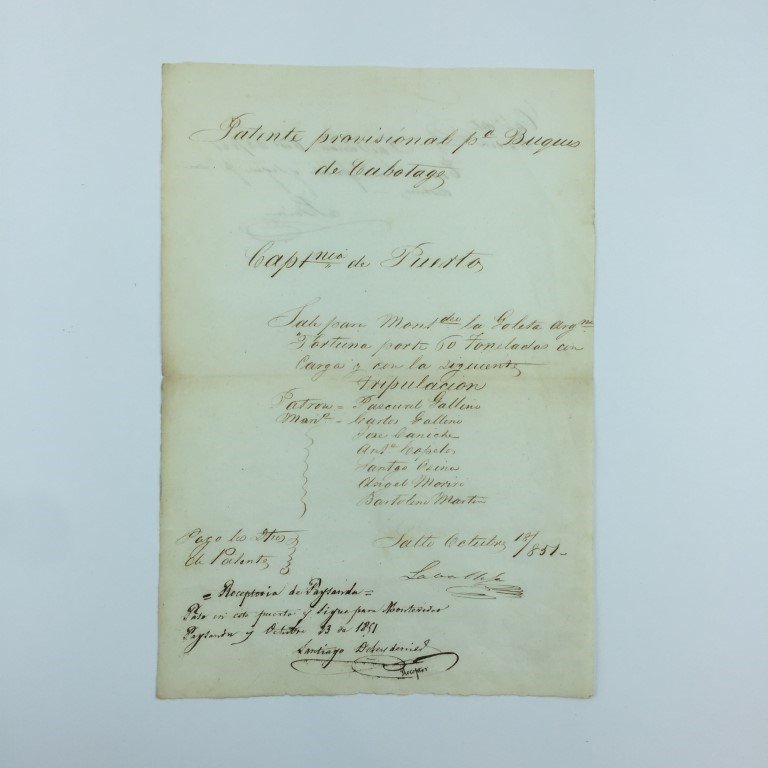 Patente provisional pa Buques
de Cabotage
Captnia de Puerto
Sale para Montdeo la Goleta Argna
Fortuna porte 60 Toneladas con
Carga y con la siguiente
tripulacion
Patron = Pascual Galleno
Maros = Carlos Galleno
Jose Caniche
Anto
Santgo
Angel
Bartolino Martin
Pago los dros
de Patente
Salto Octubre 18/851-
Lavalleja
= Receptoria de Paysandu =
Paso en este puerto y sigue para Montevideo
Paysandu y Octubre 23 de 1851
Santiago
Receptor